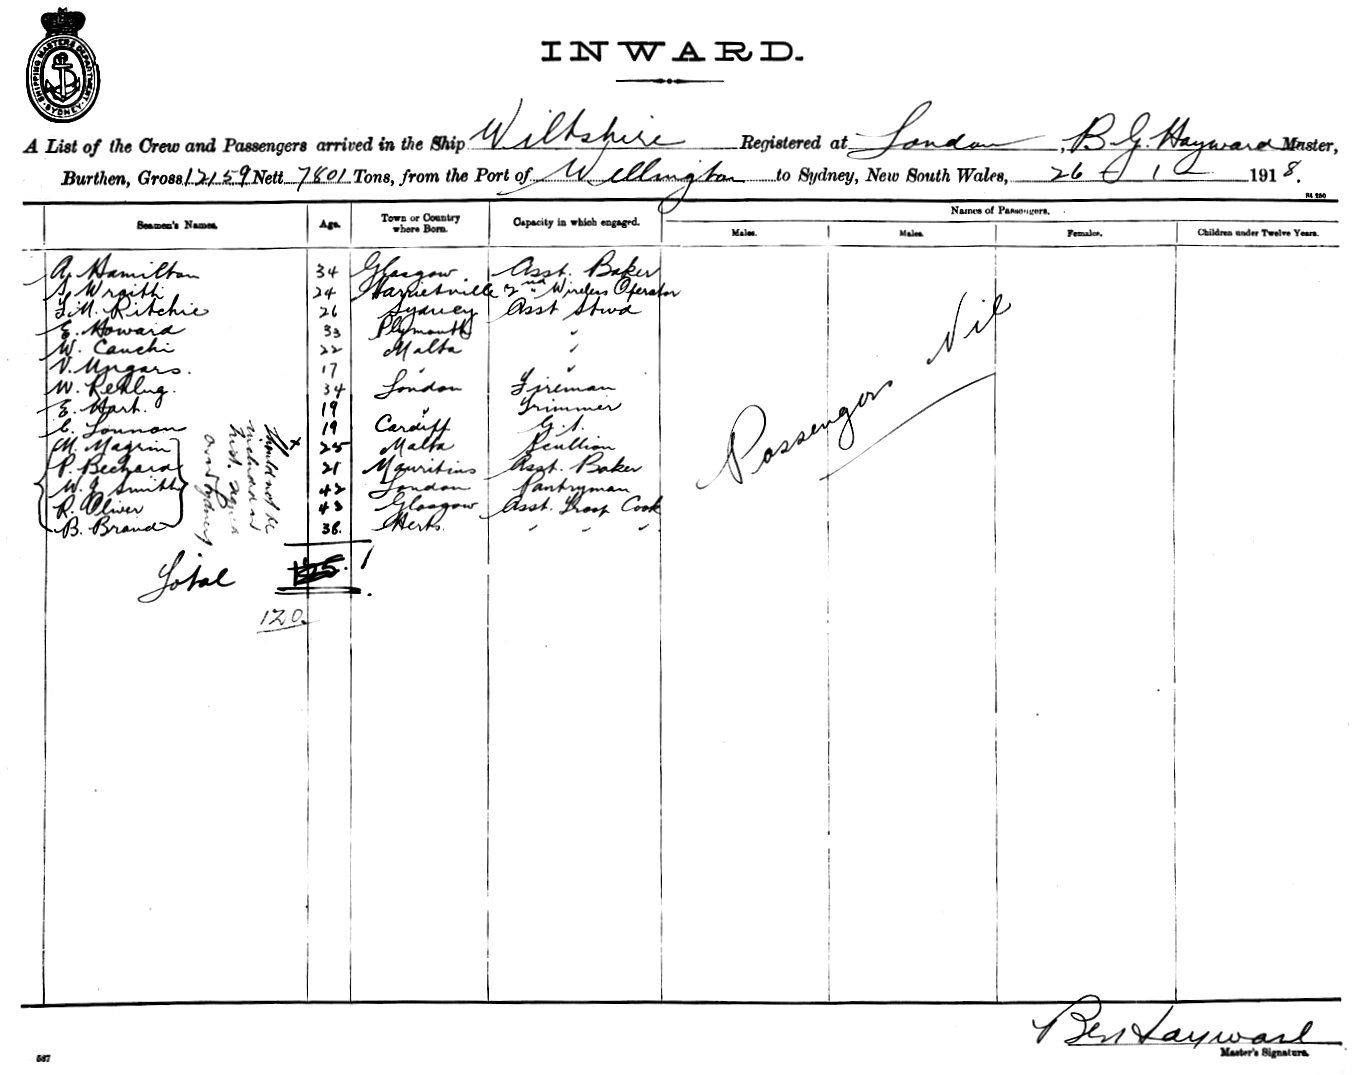 SHIPPING MASTERS DEPARTMENT SYDNEY
INWARD.
A List of the Crew and Passengers arrived in the Ship Wiltshire Registered at London, B. G. Hayward Master,
Burthen, Gross 12159 Nett 7801 Tons, from the Port of Wellington to Sydney, New South Wales, 26 1 1918.
Seamen's Names. Age. Town or Country where Born. Capacity in which engaged. Names of Passengers.
Males. Males. Females. Children under Twelve Years.
A. Hamilton 34 Glasgow Asst. Baker
Wraith 24 Harrietville 2nd Wireless Operator
Ritchie 26 Sydney Asst Stwd
E. Howard 33 Plymouth "
W. Cauchi 22 Malta "
V. Ungaro. 17 " "
W. 34 London Fireman
E. Hart. 19 " Trimmer
19 Cardiff G.S.
M. Magrin 25 Malta Scullion
P. Bechard 21 Mauritius Asst. Baker
W. G. Smith 42 London Pantryman
R. Oliver 43 Glasgow Asst. Troop Cook
B. Brand 38. Herts. " " "
x should not be
included in
list.
Sydney
Passengers Nil
Total
120.
Ben Hayward
Master's Signature.
567